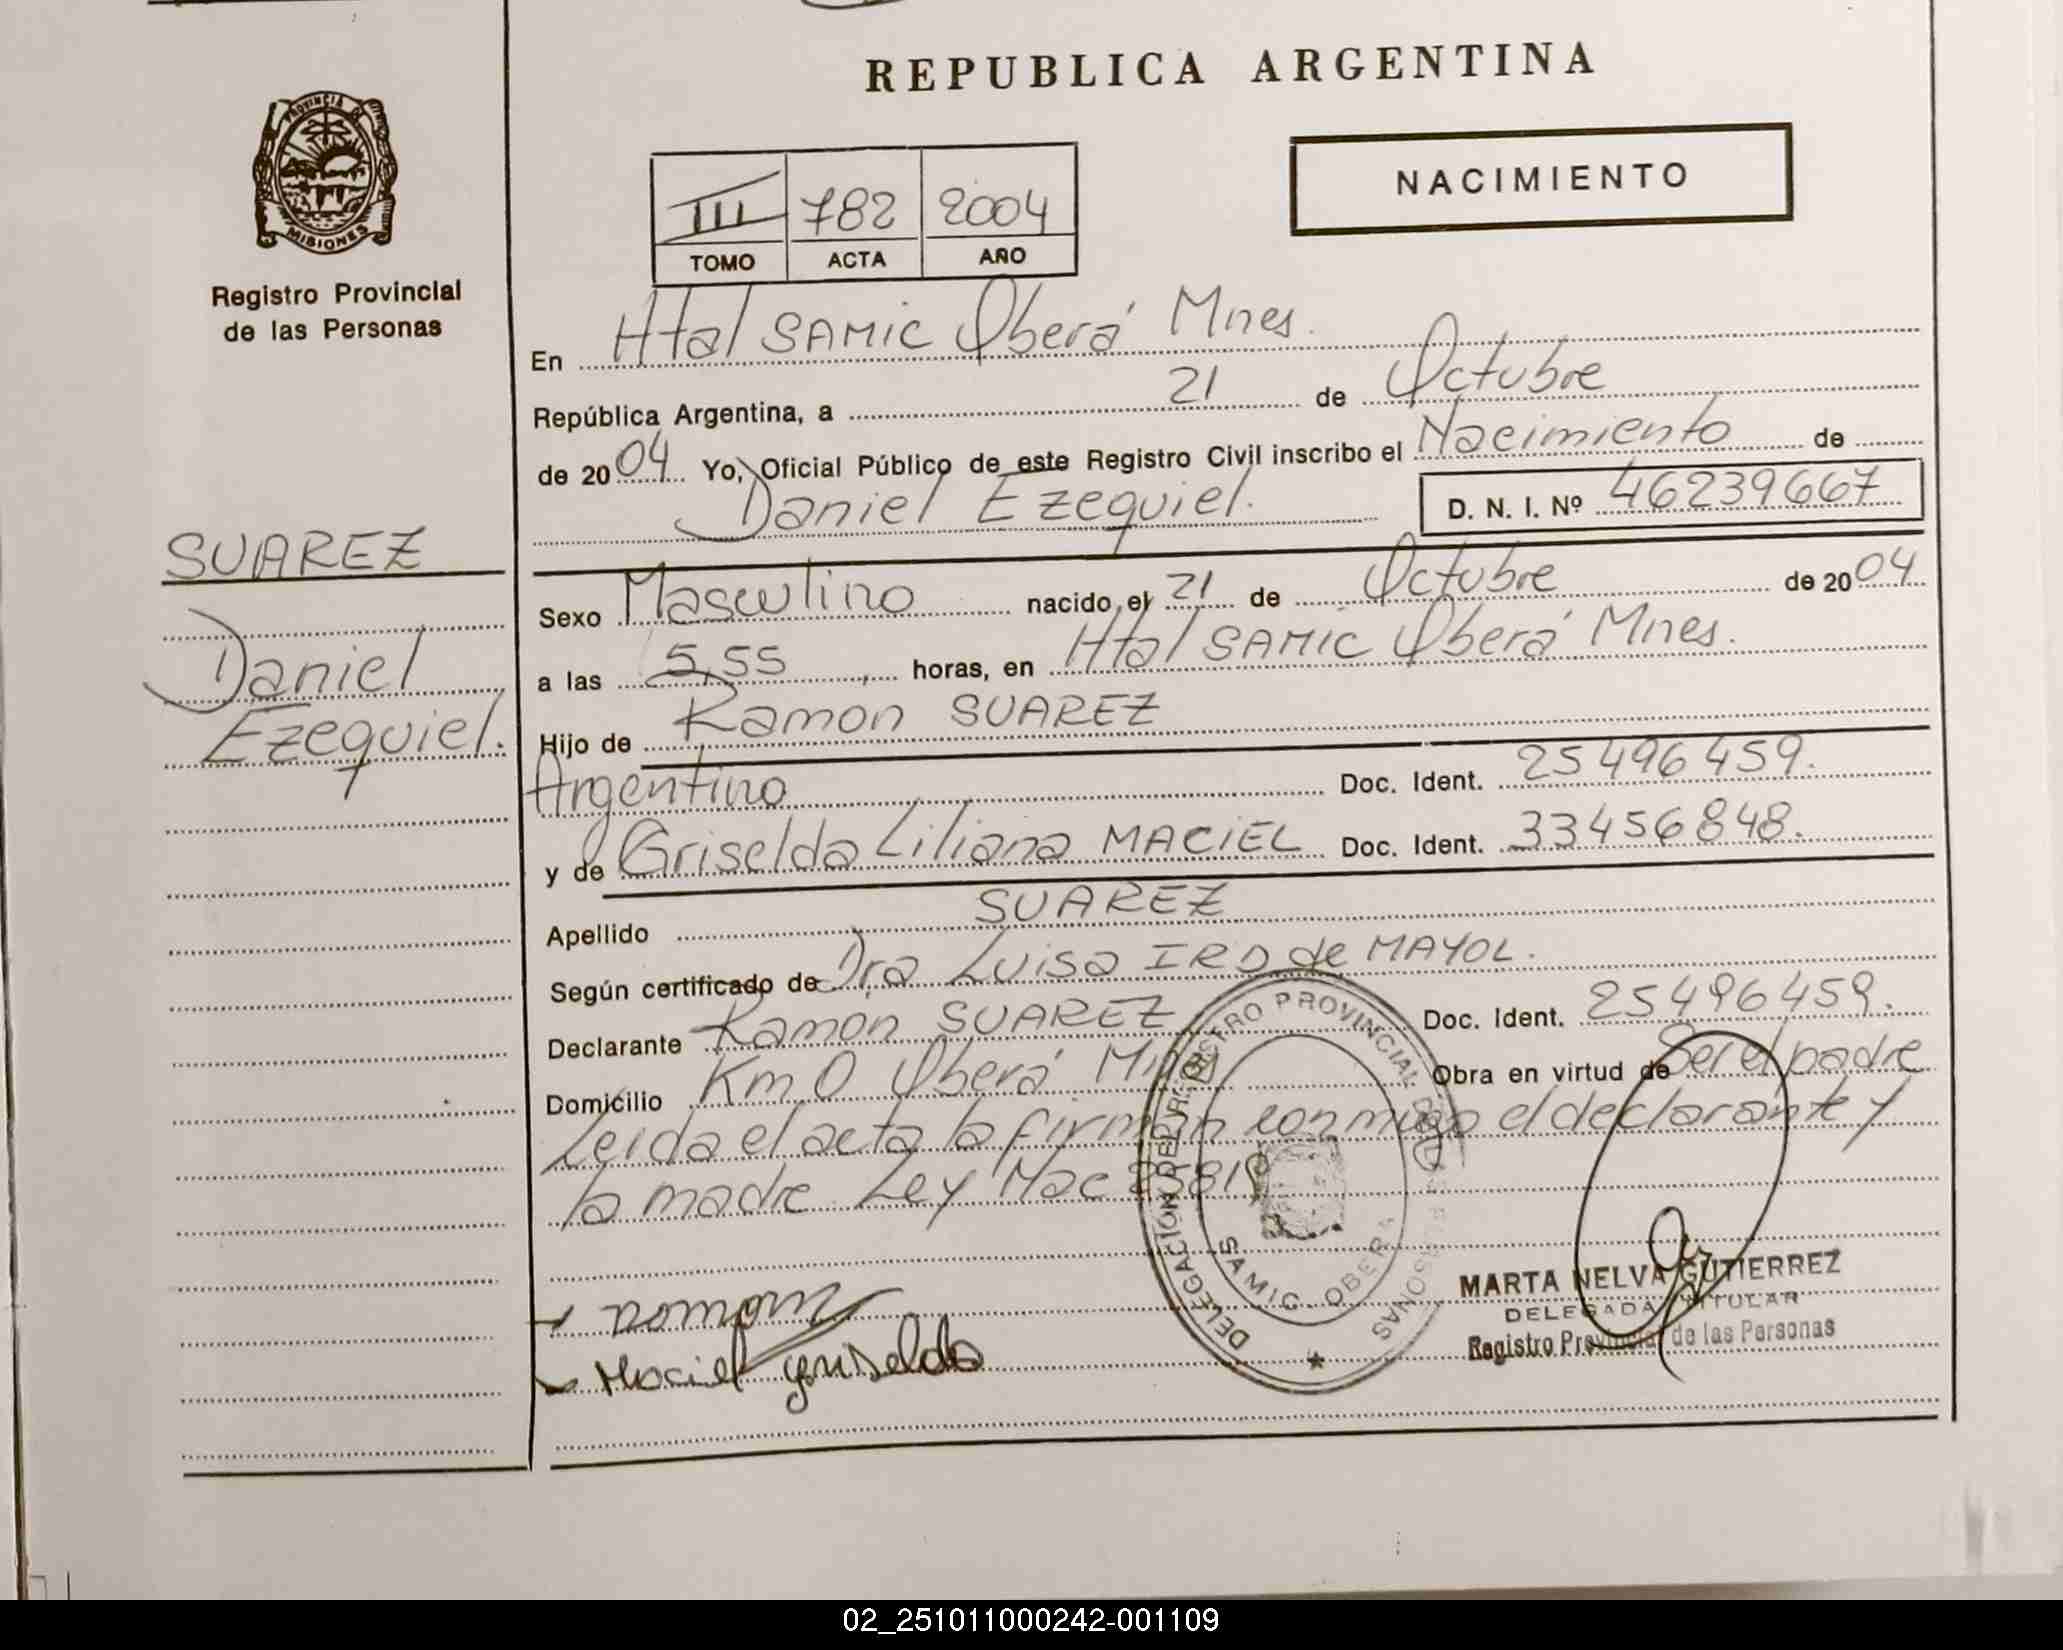 REPUBLICA ARGENTINA
PROVINCIA DE
MISIONES
Registro Provincial
de las Personas
NACIMIENTO
III 782 2004
TOMO ACTA AÑO
En Htal SAMIC Oberá Mnes.
República Argentina, a 21 de Octubre
de 2004 Yo, Oficial Público de este Registro Civil inscribo el Nacimiento de
Daniel Ezequiel. D. N. I. Nº 46239667
SUAREZ
Daniel
Ezequiel.
Sexo Masculino nacido el 21 de Octubre de 2004
a las 5,55 horas, en Htal SAMIC Oberá Mnes.
Hijo de Ramon SUAREZ
Argentino Doc. Ident. 25496459.
y de Griselda Liliana MACIEL Doc. Ident. 33456848.
Apellido SUAREZ
Según certificado de Dra Luisa de MAYOL.
Declarante Ramon SUAREZ Doc. Ident. 25496459.
Domicilio Km 0 Oberá Mnes Obra en virtud de Ser el padre
Leida el acta la firman conmigo el declarante y
la madre Ley Nac 25819
DELEGACIÓN DEL REGISTRO PROVINCIAL DE LAS PERSONAS
SAMIC - OBERA
Maciel Griselda
MARTA NELVA GUTIERREZ
DELEGADA TITULAR
Registro Provincial de las Personas
02_251011000242-001109